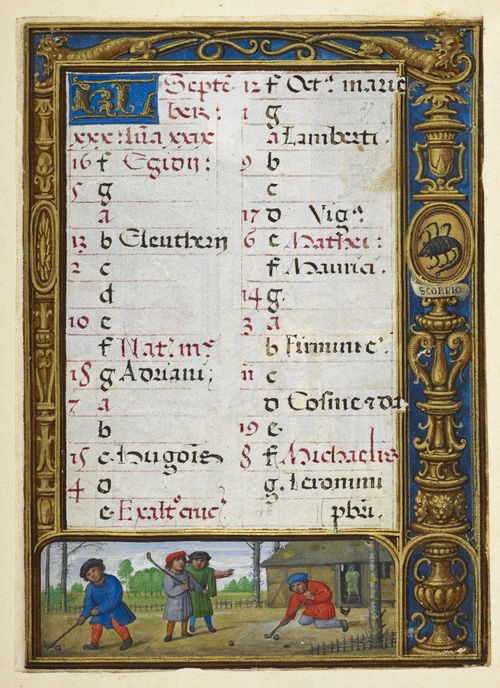 KL Septē
ber:
xxx: lūa xxix
16 f Egidii:
5 g
a
13 b Eleutherii
2 c
d
10 e
f Nat: m:
18 g Adriani;
7 a
b
15 c Hugois
4 d
e Exalt° cruc?
12 f Oct: marie
1 g
a Lamberti.
9 b
c
17 d Vig:
6 e Mathei:
f Maurici.
14 g.
3 a
b Firmini e:
11 c
d Cosme & da
19 e
8 f Michaelis
g. Ieronimi
pbri.
SCORPIO